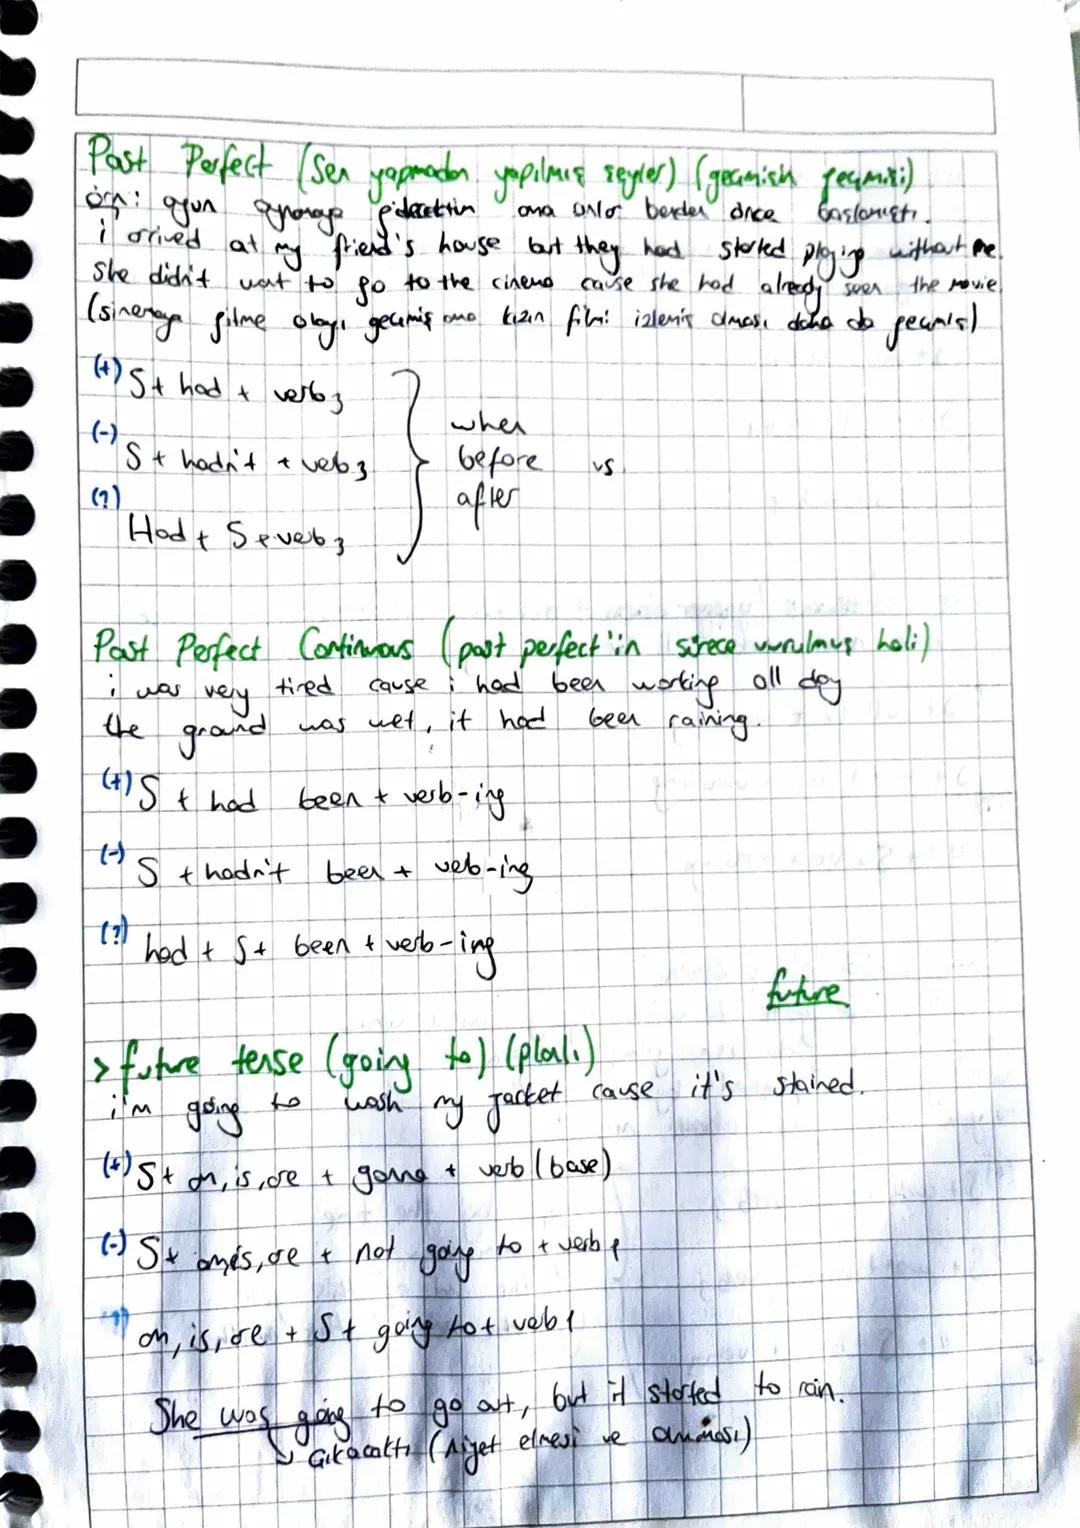 Past Perfect (Sen yapmadan yapılmış şeyler) (geçmişin geçmişi)
örn: oyun oynamaya gidecektin ama onlar benden önce başlamıştı.
i arived at my friend's house but they had started playing without me.
She didn't wat to go to the cinema cause she had already seen the movie.
(sinemaya gitme olayı geçmiş ama kızın filmi izlemiş olması daha da geçmiş)
(+) S + had + verb3
(-) S + hadn't + veb3
(?) Had + S + veb3
when
before vs
after
Past Perfect Continuous (past perfect'in sürece vurulmuş hali)
i was very tired cause i had been working all day
the ground was wet, it had been raining.
(+) S + had been + verb-ing
(-) S + hadn't been + veb-ing
(?) had + S + been + verb-ing
future
> future tense (going to) (planlı)
i'm going to wash my jacket cause it's stained.
(+) S + am, is, are + gonna + verb (base)
(-) S + am, is, are + not going to + verb 1
(?) am, is, are + S + going to + veb 1
She was going to go out, but it started to rain.
Çıkacaktı (Niyet etmesi ve